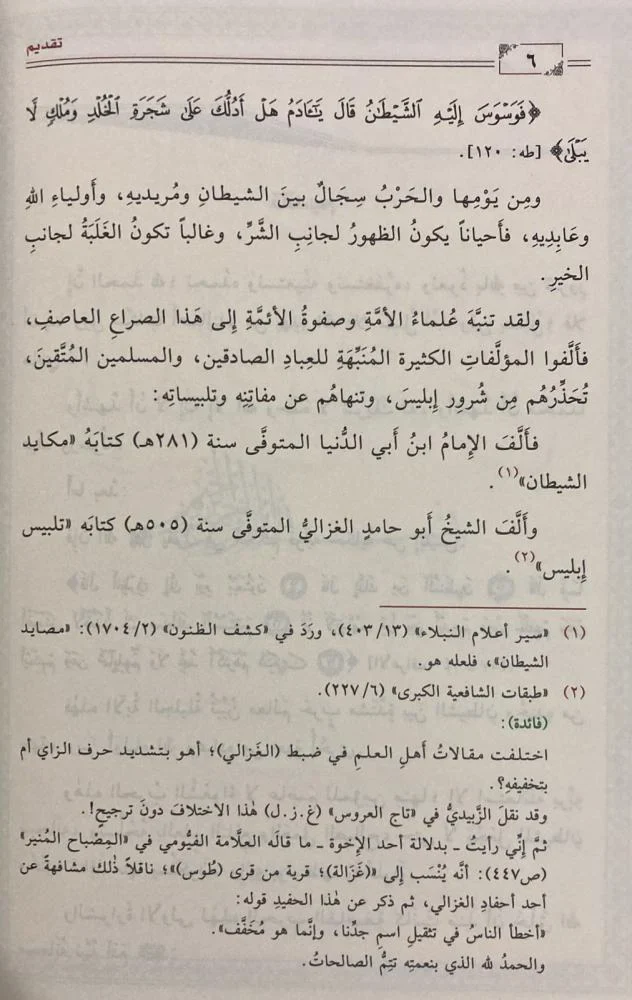 تقديم
٦
﴿فَوَسْوَسَ إِلَيْهِ الشَّيْطَانُ قَالَ يَٰٓـَٔادَمُ هَلْ أَدُلُّكَ عَلَىٰ شَجَرَةِ الْخُلْدِ وَمُلْكٍ لَّا
يَبْلَىٰ﴾ [طه: ١٢٠].
ومِن يَوْمِها والحَرْبُ سِجَالٌ بينَ الشيطانِ ومُريديهِ، وأَولياءِ اللهِ
وعَابِدِيهِ، فأحياناً يكونُ الظهورُ لجانِبِ الشَّرِّ، وغالباً تكونُ الغَلَبَةُ لجانبِ
الخيرِ.
ولقد تنبَّهَ عُلماءُ الأمَّةِ وصفوةُ الأئمَّةِ إِلى هَذا الصراعِ العاصفِ،
فأَلَّفوا المؤلَّفاتِ الكثيرة المُنَبِّهَةِ للعِبادِ الصادقين، والمسلمين المُتَّقينَ،
تُحَذِّرُهُم مِن شُرور إِبليسَ، وتنهاهُم عن مفاتِنِه وتلبيساتِه:
فأَلَّفَ الإِمامُ ابنُ أَبي الدُّنيا المتوفَّى سنة (٢٨١هـ) كتابَهُ «مكايد
الشيطان»(١).
وأَلَّفَ الشيخُ أَبو حامدٍ الغزاليُّ المتوفَّى سنة (٥٠٥هـ) كتابَه «تلبيس
إِبليس»(٢).
(١) «سير أعلام النبلاء» (٤٠٣/١٣)، ورَدَ في «كشف الظنون» (١٧٠٤/٢): «مصايد
الشيطان»، فلعله هو.
(٢) «طبقات الشافعية الكبرى» (٢٢٧/٦).
(فائدة):
اختلفت مقالاتُ أَهلِ العلمِ في ضبط (الغَزالي)؛ أهو بتشديد حرف الزاي أم
بتخفيفِهِ؟.
وقد نقلَ الزَّبيديُّ في «تاج العروس» (غ.ز.ل) هٰذا الاختلافَ دونَ ترجيحٍ!.
ثمَّ إِنِّي رأيتُ ـ بدلالة أحد الإخوة ـ ما قالَه العلَّامة الفيُّومي في «المِصْباح المُنير»
(ص٤٤٧): أنَّه يُنْسَب إلى «(غَزَالة)؛ قرية من قرى (طُوس)»؛ ناقلاً ذٰلك مشافهةً عن
أحد أحفادِ الغزالي، ثم ذكر عن هٰذا الحفيدِ قوله:
«أخطأ الناسُ في تثقيلِ اسمِ جدِّنا، وإنَّما هو مُخَفَّف».
والحمدُ لله الذي بنعمتِه تتِمُّ الصالحاتُ.